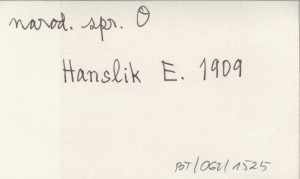 narod. spr. O
Hanslik E. 1909
BT/OGV/1525